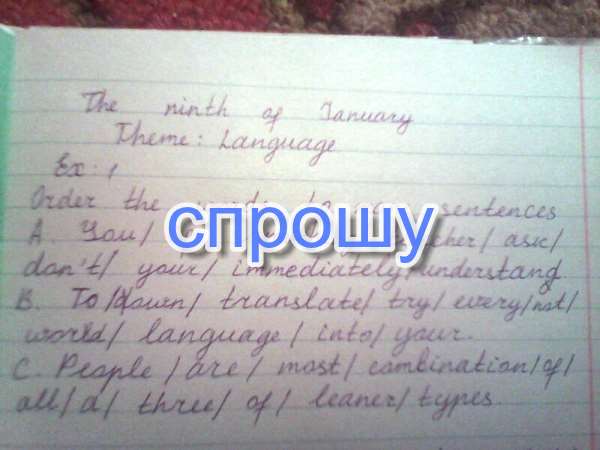 The ninth of January
Theme: Language
Ex: 1
Order the sentences
спрошу
A. You/ ask/
don't/ your/ immediately/ understand
B. To/down/ translate/ try/ every/not/
world/ language/ into/ your.
C. People/are/ most/ combination/of/
all/a/ three/ of/ leaner/ types.